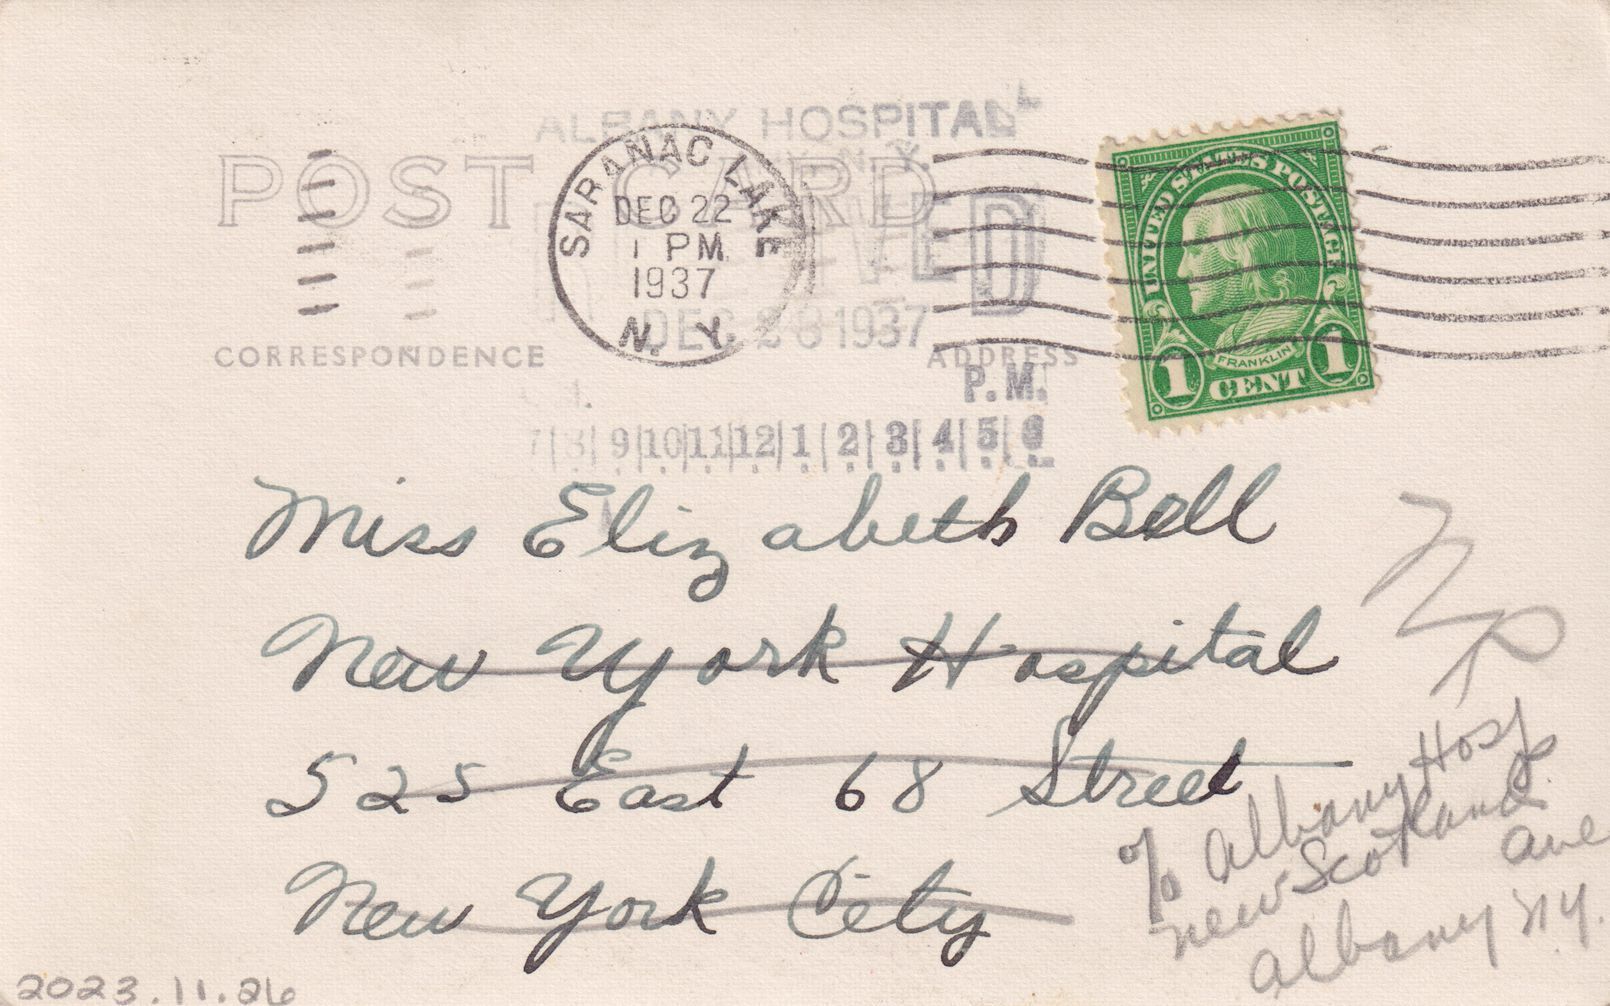 ALBANY HOSPITAL
N.Y.
POST CARD
SARANAC LAKE
DEC 22
1 PM
1937
N. Y.
DEC 28 1937
UNITED STATES POSTAGE
FRANKLIN
1 CENT 1
CORRESPONDENCE
ADDRESS
P.M.
7|8|9|10|11|12|1|2|3|4|5|6
Miss Elizabeth Bell
New York Hospital
525 East 68 Street
New York City
c/o Albany Hosp
New Scotland
Ave
Albany N.Y.
2023.11.26